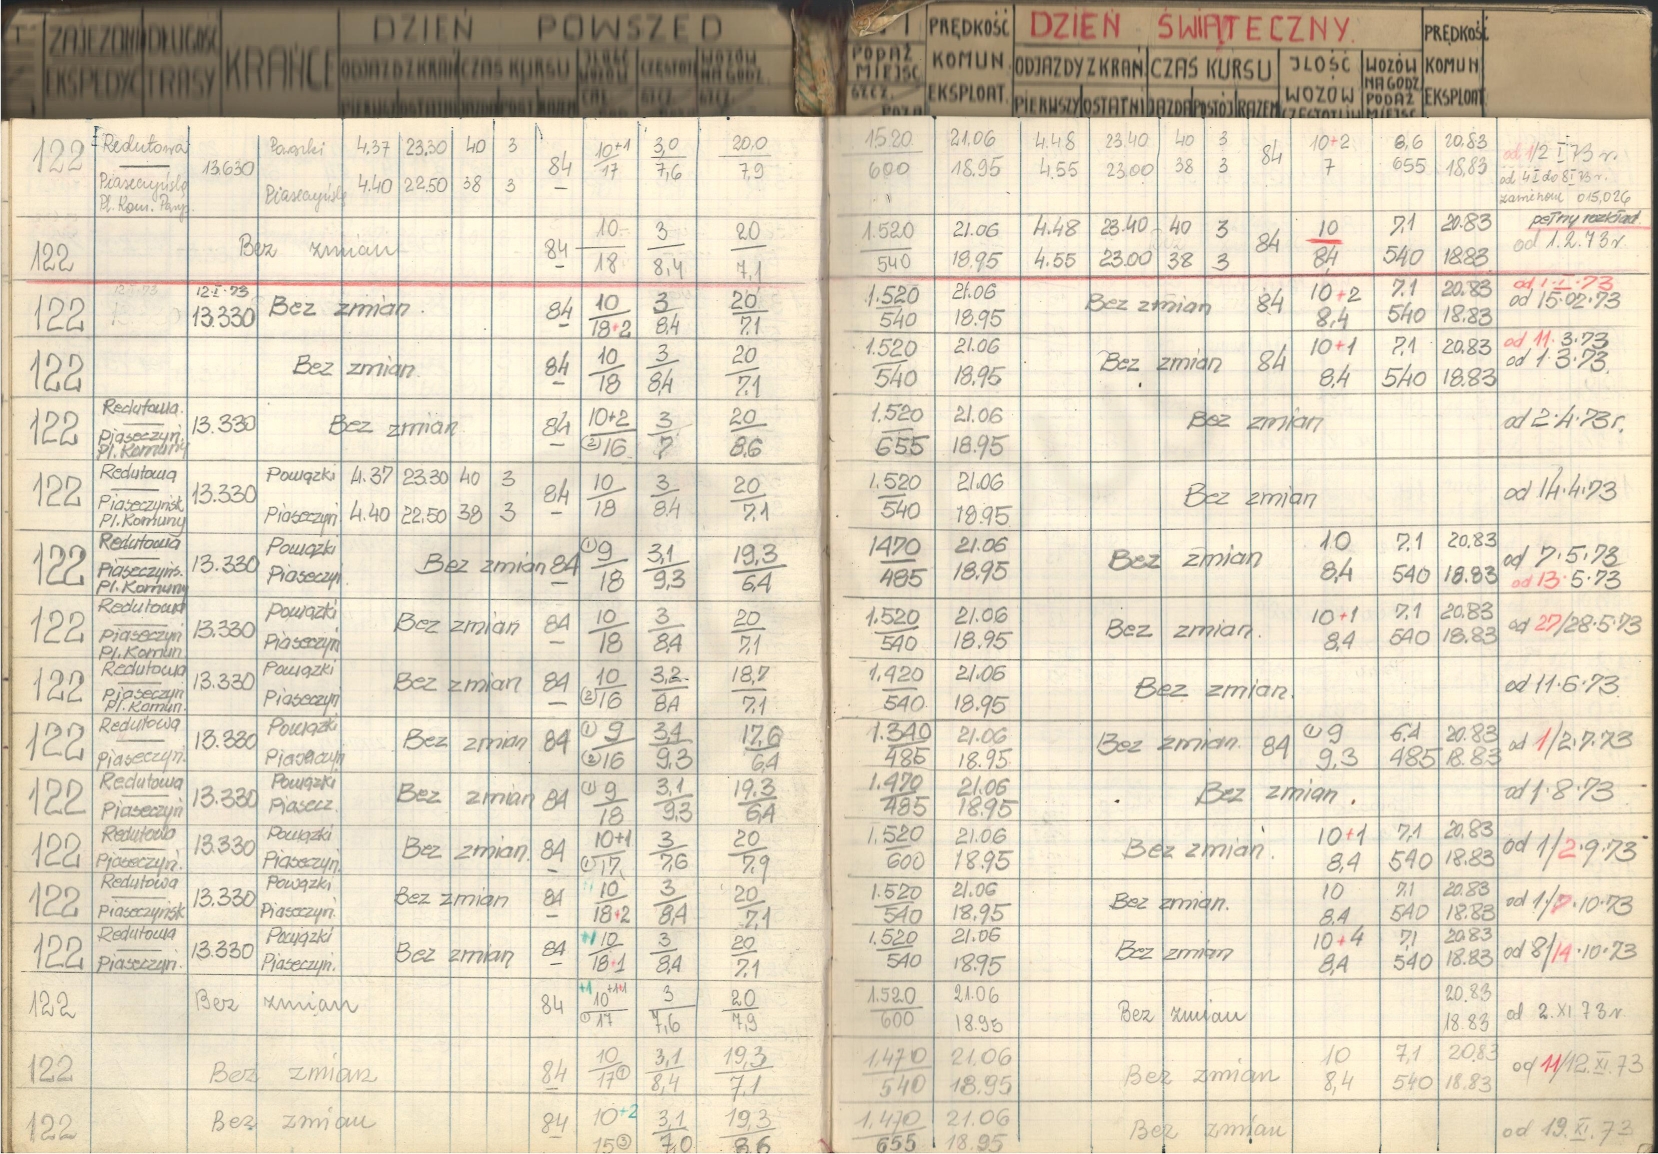 ZAJEZDNI DŁUGOŚĆ KRAŃCE DZIEŃ POWSZED
EKSPEDYC TRASY ODJAZD Z KRAŃ CZAS KURSU ILOŚĆ WOZÓW CZĘSTOT WOZÓW NA GODZ.
PIERWSZY OSTATNI JAZDA POST RAZEM SZCZ. SZCZ.
PODAŻ MIEJSC PRĘDKOŚĆ DZIEŃ ŚWIĄTECZNY. PRĘDKOŚĆ
SZCZ. KOMUN. ODJAZDY Z KRAŃ CZAS KURSU ILOŚĆ WOZÓW NA GODZ. KOMUN
POZA EKSPLOAT. PIERWSZY OSTATNI JAZDA POSTÓJ RAZEM WOZÓW CZĘSTOTLIW PODAŻ MIEJSC EKSPLOAT.
122 Redutowa 13.630 Powązki 4.37 23.30 40 3 84 10+1 3,0 20,0 1520 21.06 4.48 23.40 40 3 84 10+2 8,6 20,83 od 1/2 I 73 r.
Piaseczyńsk Piaseczyńsk 4.40 22.50 38 3 17 7,6 7,9 600 18.95 4.55 23.00 38 3 7 655 18,83 od 4 I do 8 I 73 r.
Pl. Kom. Par. zamchowe 015,026
122 Bez zmian 84 10 3 20 1.520 21.06 4.48 23.40 40 3 84 10 7,1 20.83 pełny rozkład
18 8,4 7,1 540 18.95 4.55 23.00 38 3 8,4 540 18.83 od 1.2.73 r.
122 12·I·73 Bez zmian. 84 10 3 20 1.520 21.06 Bez zmian 84 10+2 7,1 20.83 od 1·I·73
13.330 18+2 8.4 7,1 540 18.95 8,4 540 18.83 od 15·02·73
122 Bez zmian. 84 10 3 20 1.520 21.06 Bez zmian 84 10+1 7,1 20.83 od 11·3·73
18 8,4 7,1 540 18.95 8,4 540 18.83 od 1·3·73.
122 Redutowa. 13.330 Bez zmian 84 10+2 3 20 1.520 21.06 Bez zmian od 2·4·73 r.
Piaseczyń. ②16 7 8,6 655 18.95
Pl. Komuny
122 Redutową 13.330 Powązki 4.37 23.30 40 3 84 10 3 20 1.520 21.06 Bez zmian od 14·4·73
Piaseczyńsk Piaseczyń 4.40 22.50 38 3 18 8,4 7,1 540 18.95
Pl. Komuny
122 Redutowa 13.330 Powązki Bez zmian 84 ①9 3,1 19,3 1470 21.06 Bez zmian 10 7,1 20.83 od 7·5·73
Piaseczyńs. Piaseczyń. 18 9,3 6,4 485 18.95 8,4 540 18.83 od 13·5·73
Pl. Komuny
122 Redutowa 13.330 Powązki Bez zmian 84 10 3 20 1.520 21.06 Bez zmian. 10+1 7,1 20.83 od 27/28·5·73
Piaseczyń Piaseczyń 18 8,4 7,1 540 18.95 8,4 540 18.83
Pl. Komun.
122 Redutowa 13.330 Powązki Bez zmian 84 10 3,2 18,7 1.420 21.06 Bez zmian. od 11·6·73
Piaseczyń Piaseczyń ②16 8,4 7,1 540 18.95
Pl. Komun.
122 Redutową 13.330 Powązki Bez zmian 84 ①9 3,4 17,6 1.340 21.06 Bez zmian. 84 ①9 6,4 20.83 od 1/2·7·73
Piaseczyń. Piaseczyń ②16 9,3 6,4 485 18.95. 9,3 485 18.83
122 Redutową 13.330 Powązki Bez zmian 84 ①9 3,1 19,3 1.470 21.06 Bez zmian. od 1·8·73
Piaseczyń Piasecz. 18 9,3 6,4 485 18.95
122 Redutowa 13.330 Powązki Bez zmian. 84 10+1 3 20 1.520 21.06 Bez zmian. 10+1 7,1 20.83 od 1/2·9·73
Piaseczyń. Piaseczyń. ①17 7,6 7,9 600 18.95 8,4 540 18.83
122 Redutowa 13.330 Powązki Bez zmian 84 10 3 20 1.520 21.06 Bez zmian. 10 7,1 20.83 od 1/7·10·73
Piaseczyńsk Piaseczyń. 18+2 8,4 7,1 540 18.95 8,4 540 18.83
122 Redutowa 13.330 Powązki Bez zmian 84 +1 10 3 20 1.520 21.06 Bez zmian 10+4 7,1 20.83 od 8/14·10·73
Piaseczyń. Piaseczyń. 18+1 8,4 7,1 540 18.95 8,4 540 18.83
122 Bez zmian 84 +1 10+1+1 3 20 1.520 21.06 Bez zmian 20.83 od 2.XI 73 r.
①17 7,6 7,9 600 18.95 18.83
122 Bez zmian 84 10 3,1 19,3 1.470 21.06 Bez zmian 10 7,1 20.83 od 11/12.XI.73
17① 8,4 7,1 540 18.95 8,4 540 18.83
122 Bez zmian 84 10+2 3,1 19,3 1.470 21.06 Bez zmian od 19.XI.73
15③ 7,0 8,6 655 18.95